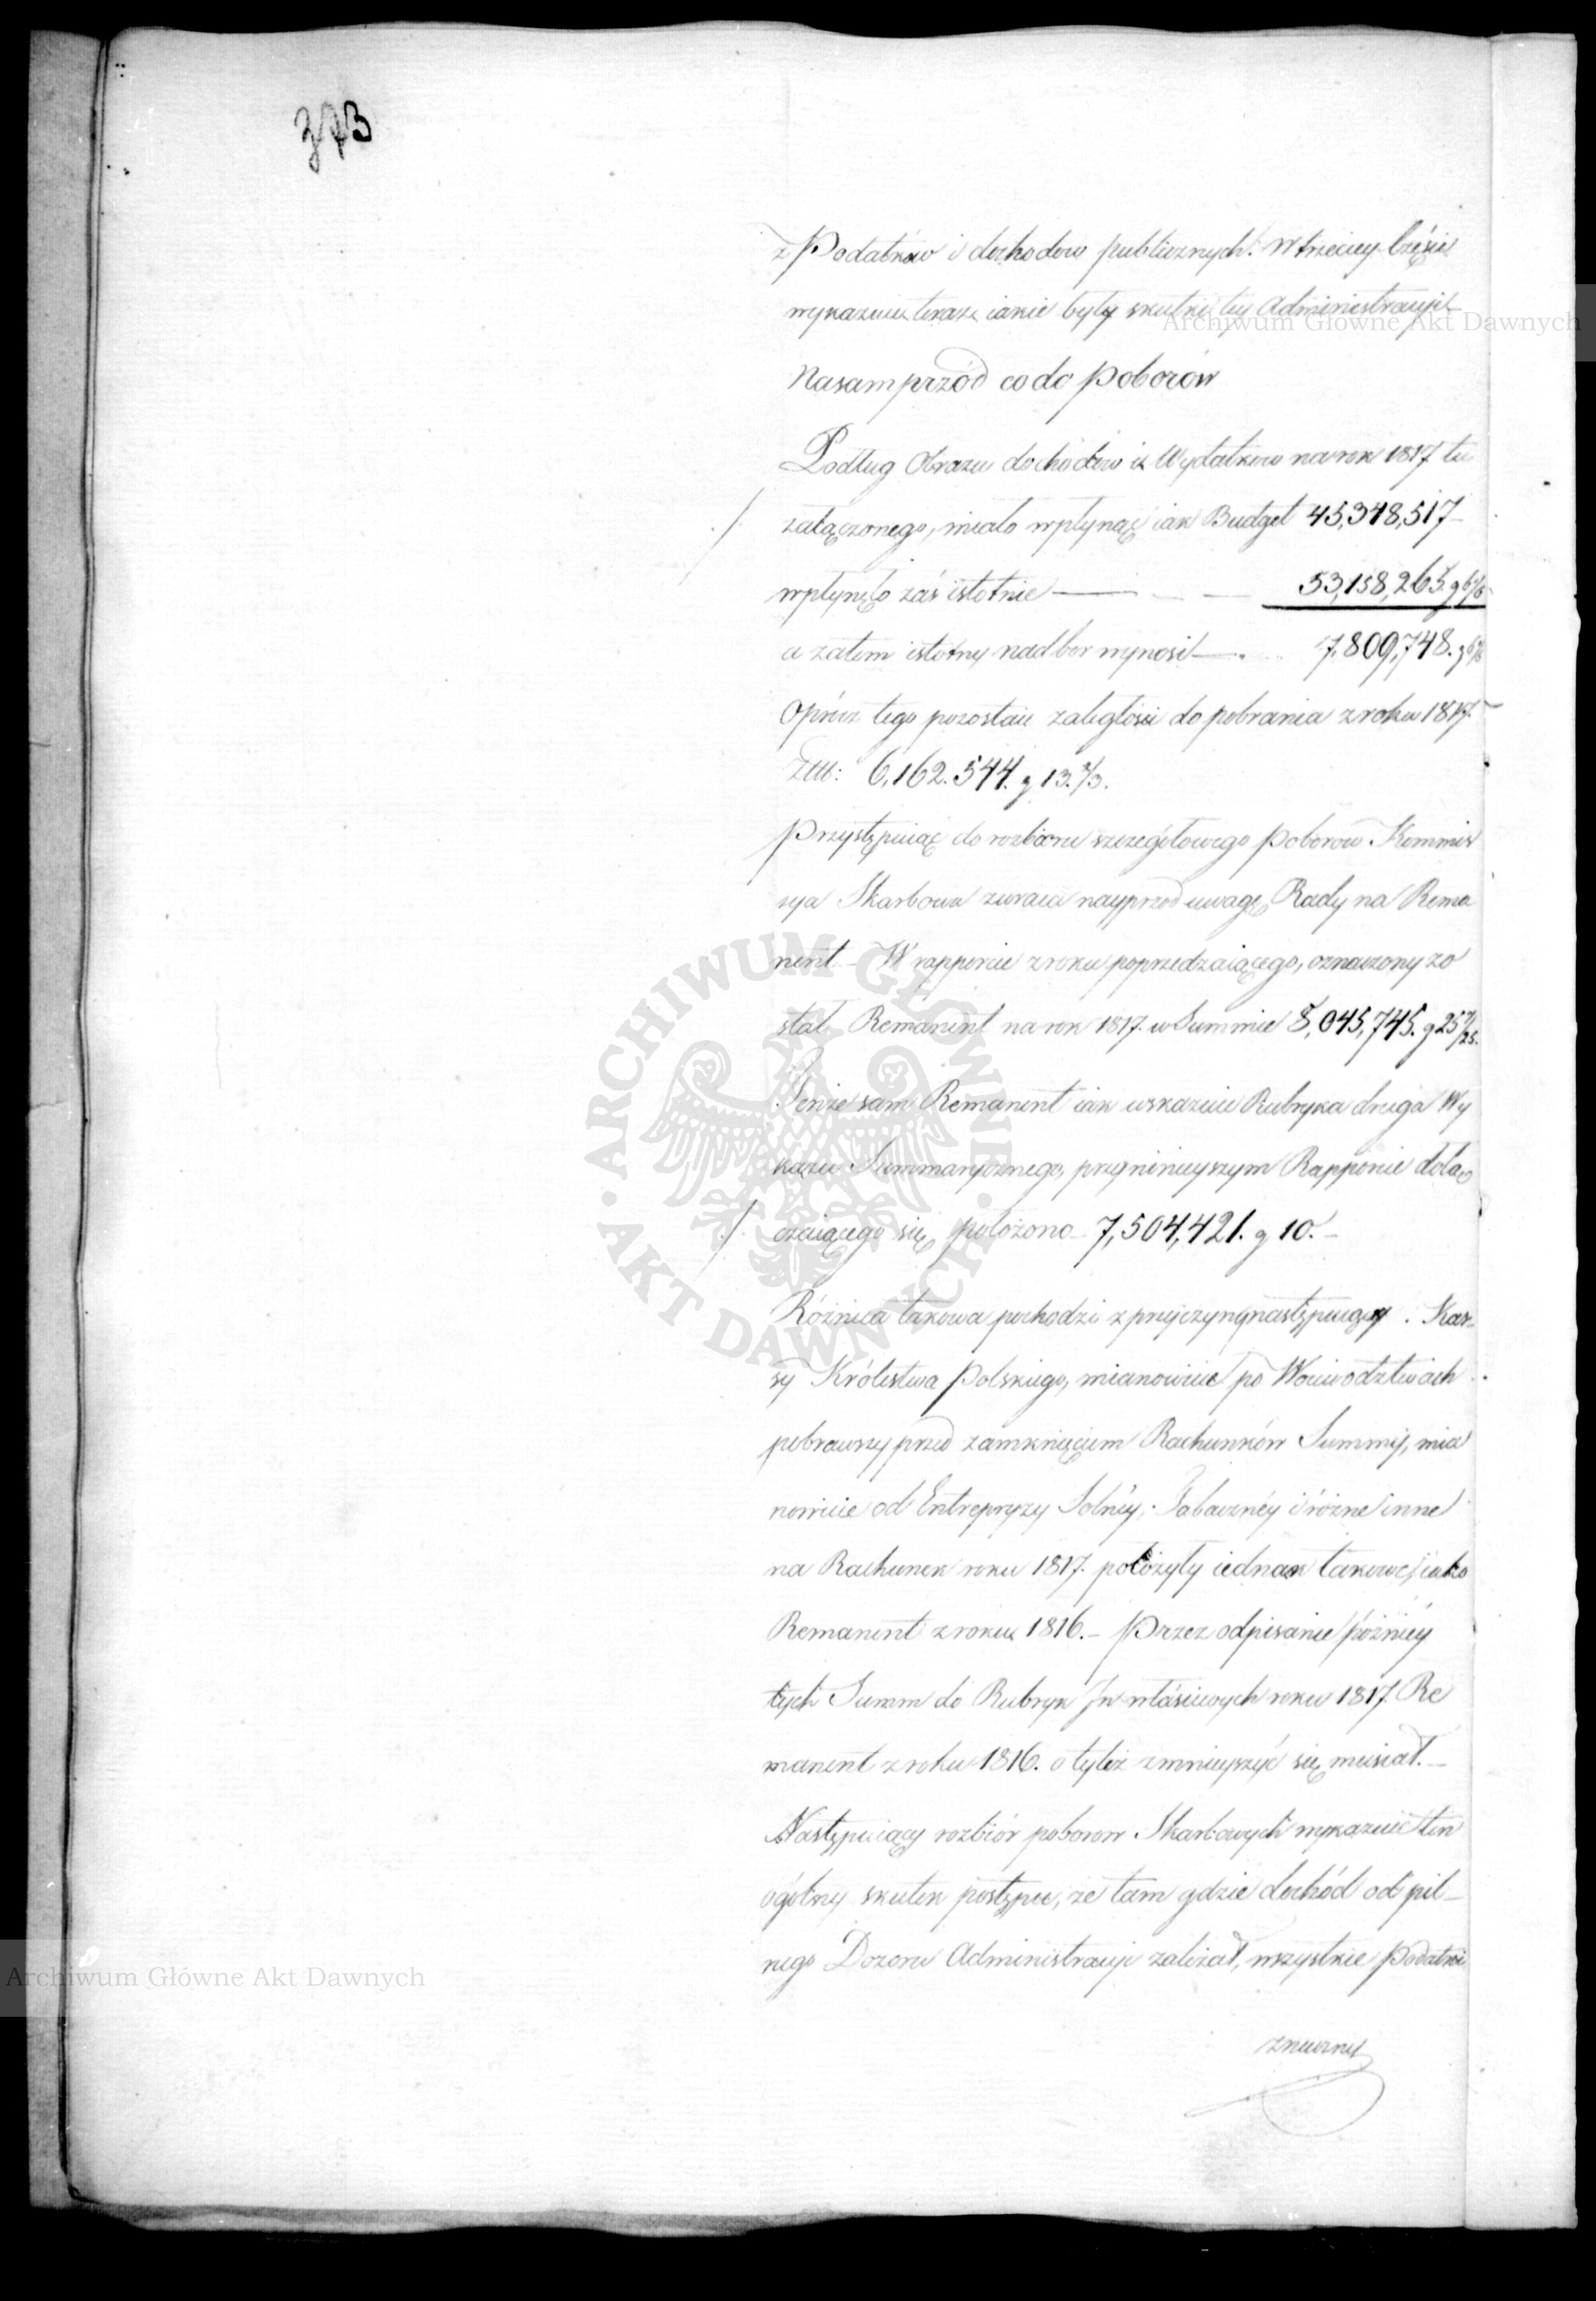 373
z Podatków i dochodow publicznych. W trzeciey Części
wykazuie teraz iakie były skutki tey Administracyi
Archiwum Główne Akt Dawnych
Nasamprzód co do Poborów
Podług Obrazu dochodów i Wydatkow na rok 1817 tu
/. załączonego, miało wpłynąć iak Budget 45,348,517
wpłynęło zaś istotnie — 53,158,265. g 6
a zatem istotny nadbor wynosił — 7,809,748. g 6
Oprócz tego pozostaie zaległości do pobrania z roku 1817
Złł: 6,162.544. g 13.
Przystępuiąc do rozbioru szczegółowego Poborow. Kommis
sya Skarbowa zwraca nayprzod uwagę Rady na Rema
nent — W rapporcie z roku poprzedzaiącego, oznaczony zo
stał Remanent na rok 1817. w Summie 8,045,745. g 25
Tenże sam Remanent iak wskazuie Rubryka druga Wy
kazu Summarycznego, przy ninieyszym Rapporcie dołą
/. czaiącego się położono 7,504,421. g 10. —
Różnica takowa pochodzi z przyczyny następuiącey. Kas-
sy Królestwa Polskiego, mianowicie po Woiewodztwach
pobrawszy przed zamknięciem Rachunków Summy, mia
nowicie od Entrepryzy Solnéy, Tabacznéy i różne inne
na Rachunek roku 1817. położyły iednak takowe, iako
Remanent z roku 1816. — Przez odpisanie późniéy
tych Summ do Rubryk właściwych roku 1817. Re
manent z roku 1816. o tyleż zmnieyszyć się musiał. —
Następuiący rozbiór poborow Skarbowych wykazuie ten
ogólny skutek postępu, że tam gdzie dochód od pil-
nego Dozoru Administracyi zależał, wszystkie Podatki
Archiwum Główne Akt Dawnych
znaczny
ARCHIWUM GŁÓWNE · AKT DAWNYCH ·